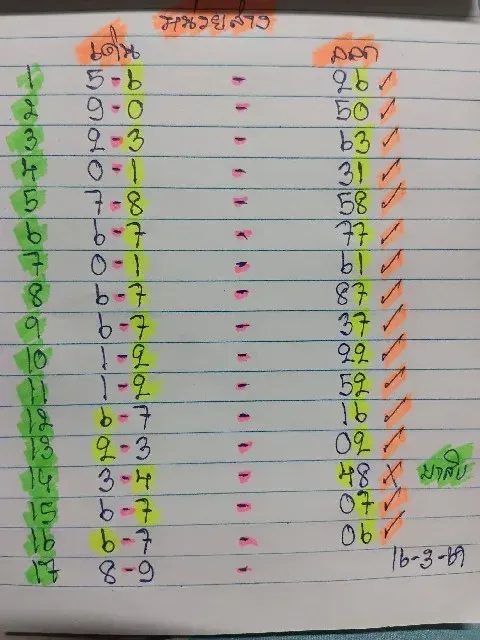 หน่วยล่าง
เด่น ออก
1 5-6 - 26 ✓
2 9-0 - 50 ✓
3 2-3 - 63 ✓
4 0-1 - 31 ✓
5 7-8 - 58 ✓
6 6-7 - 77 ✓
7 0-1 - 61 ✓
8 6-7 - 87 ✓
9 6-7 - 37 ✓
10 1-2 - 22 ✓
11 1-2 - 52 ✓
12 6-7 - 16 ✓
13 2-3 - 02 ✓
14 3-4 - 48 ✗ มาสิบ
15 6-7 - 07 ✓
16 6-7 - 06 ✓
16-3-69
17 8-9 -